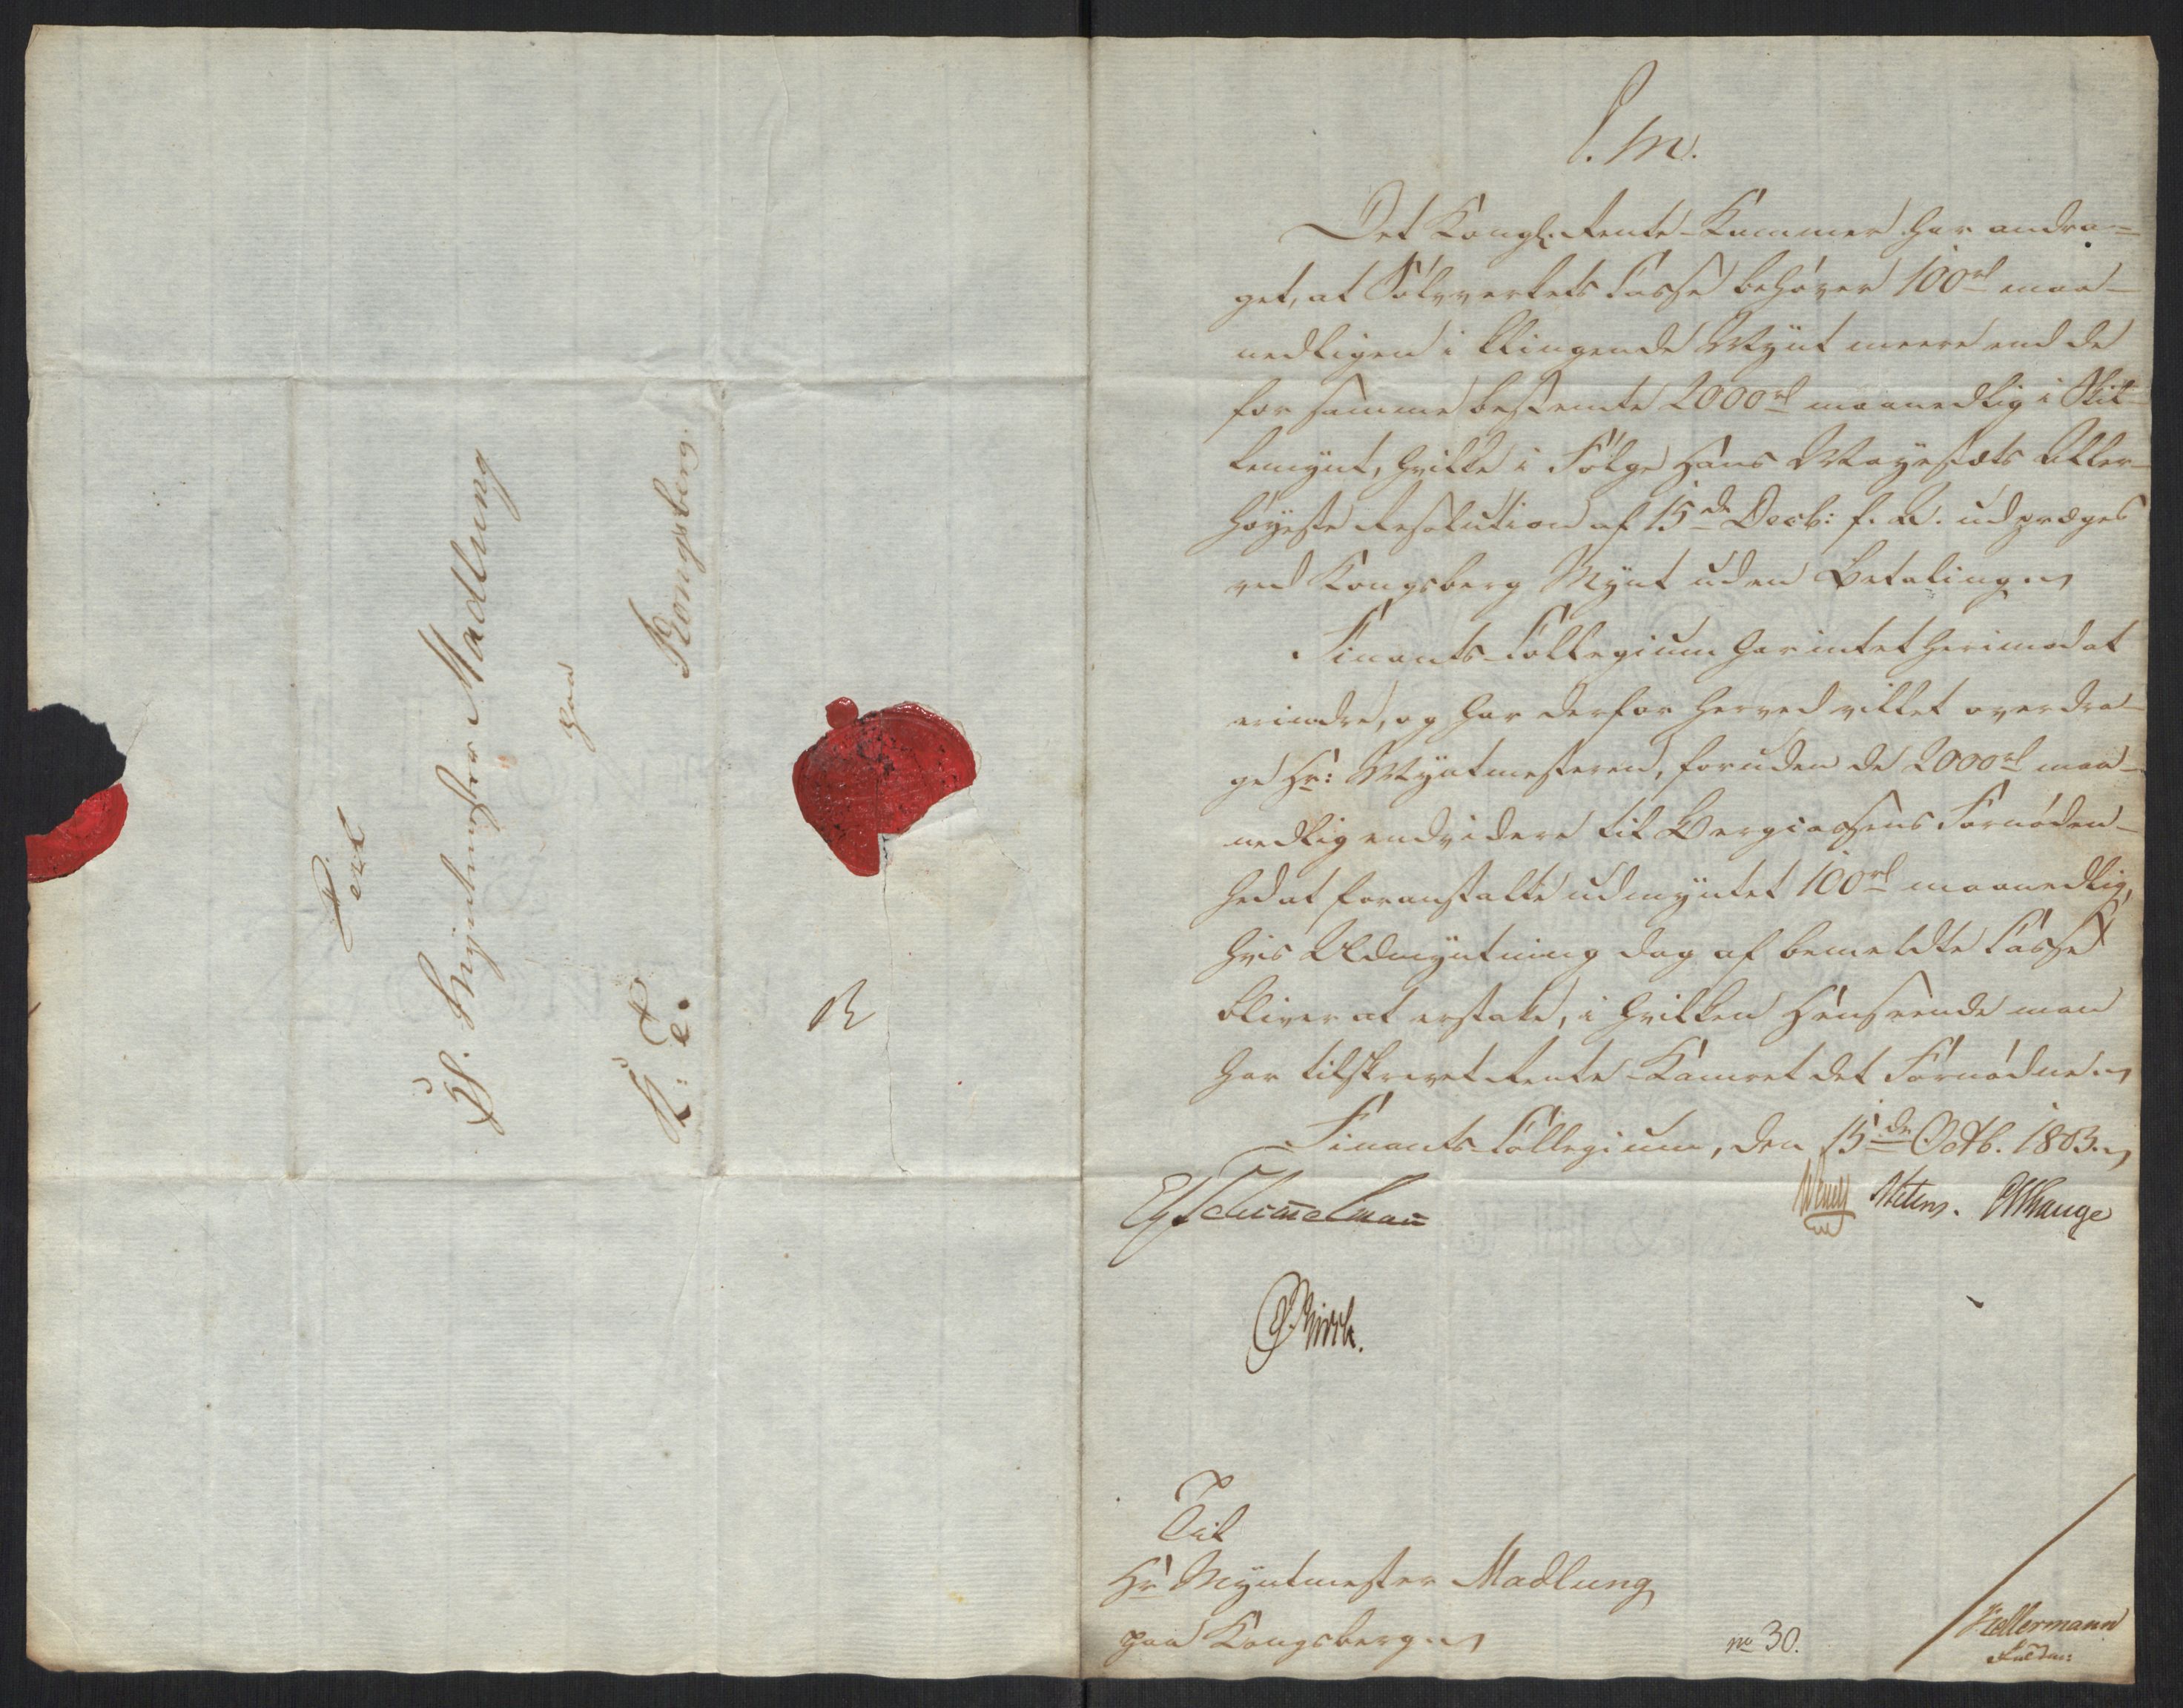 Til
H. Myntmester Madlung
paa
Kongsberg.
K: T.
P. M.
Det Kongl. Rente-Kammer har andra-
get, at Sölvverkets Casse behöver 100 rd maa-
nedligen i klingende Mynt meere end de
for samme bestemte 2000 rd maanedlig i Skil-
lemynt, hvilke i Fölge Hans Mayestæts Aller-
höyeste Resolution af 15de Decb: f. A. udpræges
ved Kongsberg Mynt uden Betaling.
Finants-Collegium har intet herimod at
erindre, og har derfor herved villet overdra-
ge Hr: Myntmesteren, foruden de 2000 rd maa-
nedlig endvidere til Bergcassens Fornöden-
hed at foranstalte udmyntet 100 rd maanedlig,
hvis Udmyntning dog af bemeldte Casse
bliver at erstate, i hvilken Henseende man
har tilskrevet Rente-Kamret det Fornödne.
Finants-Collegium, den 15de Octb. 1803.
E Schimmelmann
Kirk.
Til
Hr Myntmester Madlung
paa Kongsberg.
no 30.
Kellermann